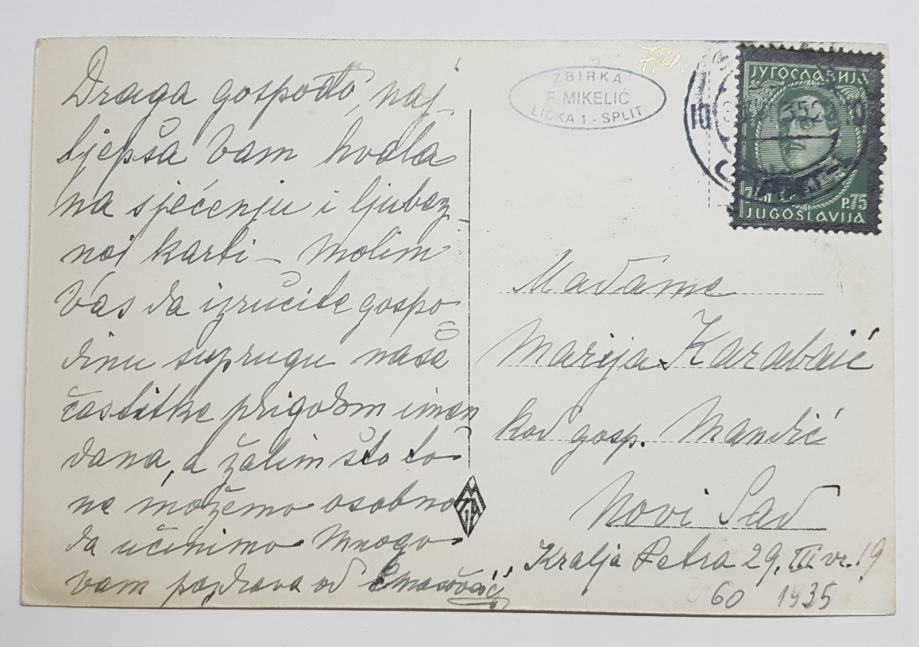 Draga gospođo, naj-
ljepša vam hvala
na sjećanju i ljubaz-
noj karti – Molim
Vas da izručite gospo-
dinu suprugu naše
čestitke prigodom imen
dana, a žalim što to
ne možemo osobno
da učinimo Mnogo
vam pozdrava od
ZBIRKA
F. MIKELIĆ
LIČKA 1 - SPLIT
ЈУГОСЛАВИЈА
P.75
JUGOSLAVIJA
Madame
Marija Karabaić
kod gosp. Mandić
Novi Sad
Kralja Petra 29, III vr. 19
60 1935